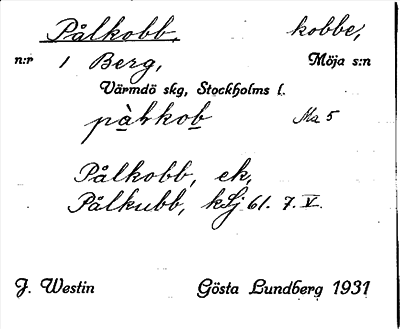 Pålkobb, kobbe,
n:r 1 Berg, Möja s:n
Värmdö skg, Stockholms l.
pàlkob Ma 5
Pålkobb, ek,
Pålkubb, kSj 61. 7. V.
J. Westin Gösta Lundberg 1931